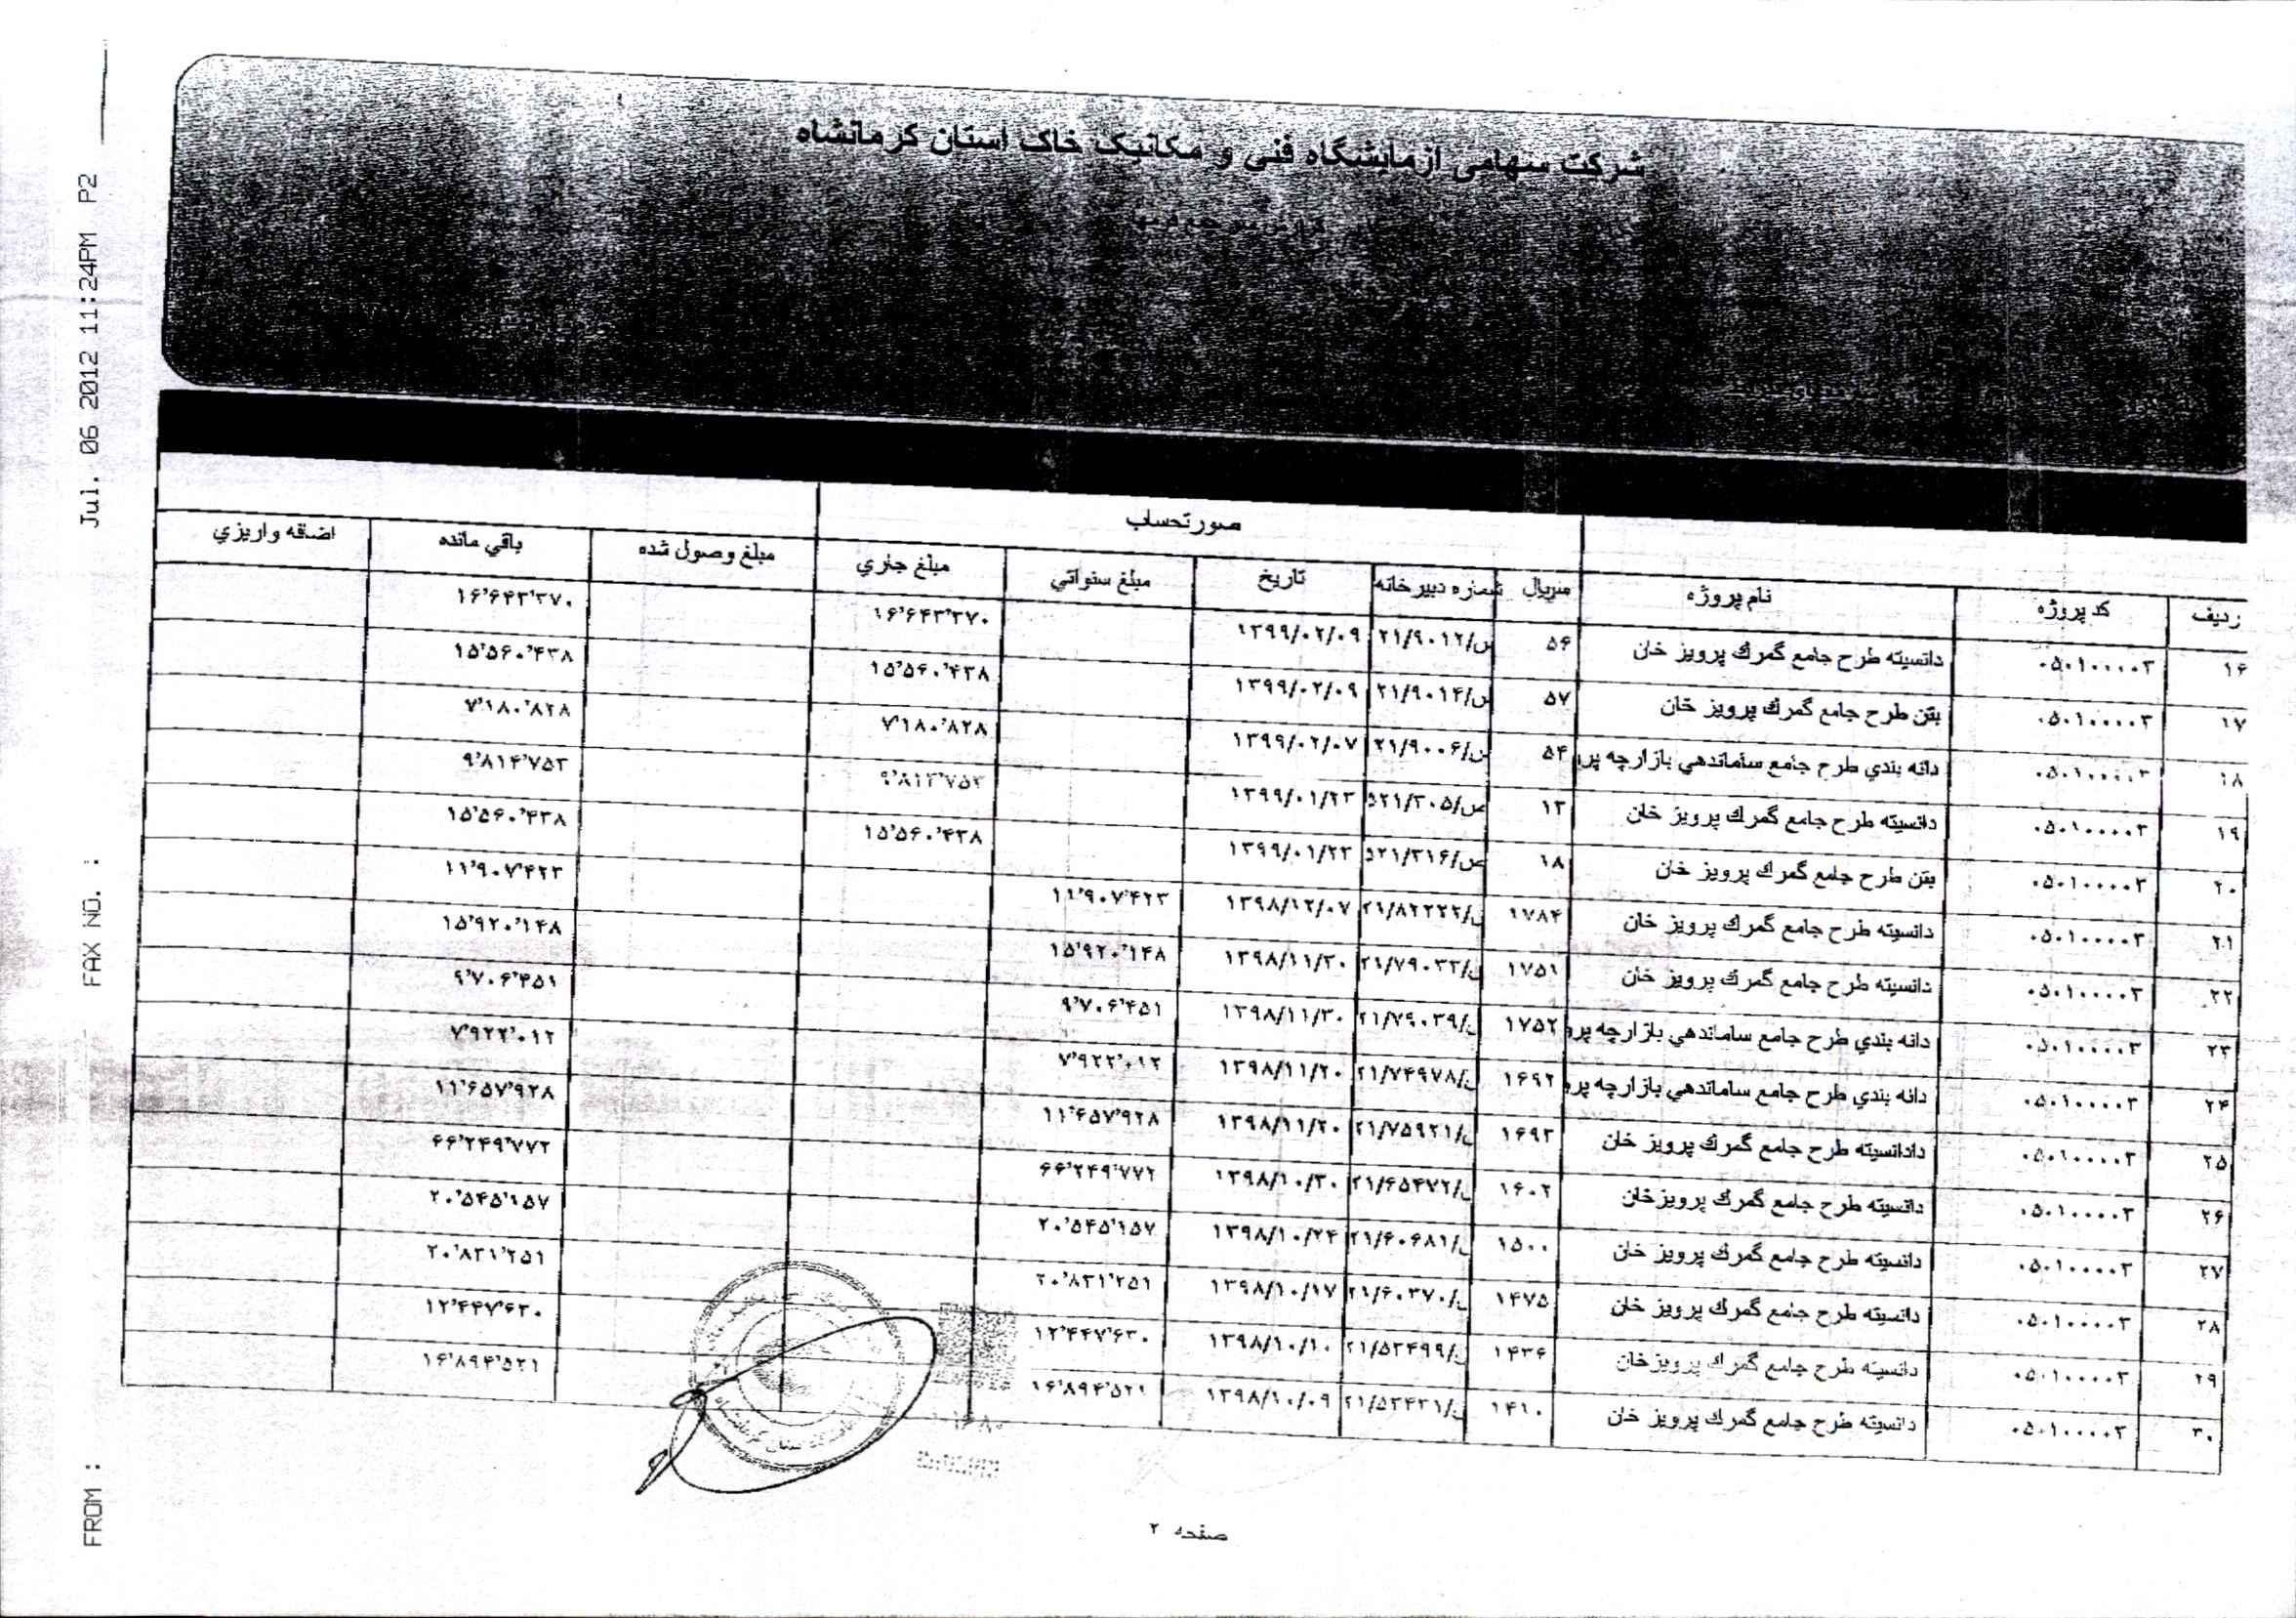 Jul. 06 2012 11:24PM P2
FAX NO. :
FROM :
شرکت سهامی ازمایشگاه فنی و مکانیک خاک استان کرمانشاه
صورتحساب
ردیف کد پروژه نام پروژه سریال شماره دبیرخانه تاریخ مبلغ سنواتي مبلغ جاري مبلغ وصول شده باقي مانده اضافه واريزي
۱۶ ۰۵۰۱۰۰۰۰۰۳ دانسیته طرح جامع گمرك پرویز خان ۵۶ ۲۱/۹۰۱۲/س ۱۳۹۹/۰۲/۰۹ ۱۶٬۶۴۳٬۲۷۰ ۱۶٬۶۴۳٬۲۷۰
۱۷ ۰۵۰۱۰۰۰۰۰۳ بتن طرح جامع گمرك پرویز خان ۵۷ ۲۱/۹۰۱۴/س ۱۳۹۹/۰۲/۰۹ ۱۵٬۵۶۰٬۴۳۸ ۱۵٬۵۶۰٬۴۳۸
۱۸ ۰۵۰۱۰۰۰۰۰۳ دانه بندي طرح جامع ساماندهي بازارچه پرو ۵۴ ۲۱/۹۰۰۶/س ۱۳۹۹/۰۲/۰۷ ۷٬۱۸۰٬۸۲۸ ۷٬۱۸۰٬۸۲۸
۱۹ ۰۵۰۱۰۰۰۰۰۳ دانسیته طرح جامع گمرك پرویز خان ۱۳ ۵۲۱/۳۰۵/ص ۱۳۹۹/۰۱/۲۳ ۹٬۸۱۴٬۷۵۳ ۹٬۸۱۴٬۷۵۳
۲۰ ۰۵۰۱۰۰۰۰۰۳ بتن طرح جامع گمرك پرویز خان ۱۸ ۵۲۱/۳۱۶/ص ۱۳۹۹/۰۱/۲۳ ۱۵٬۵۶۰٬۴۳۸ ۱۵٬۵۶۰٬۴۳۸
۲۱ ۰۵۰۱۰۰۰۰۰۳ دانسیته طرح جامع گمرك پرویز خان ۱۷۸۴ ۲۱/۸۲۲۲۲/ ۱۳۹۸/۱۲/۰۷ ۱۱٬۹۰۷٬۴۲۳ ۱۱٬۹۰۷٬۴۲۳
۲۲ ۰۵۰۱۰۰۰۰۰۳ دانسیته طرح جامع گمرك پرویز خان ۱۷۵۱ ۲۱/۷۹۰۳۳/ ۱۳۹۸/۱۱/۳۰ ۱۵٬۹۲۰٬۱۴۸ ۱۵٬۹۲۰٬۱۴۸
۲۳ ۰۵۰۱۰۰۰۰۰۳ دانه بندي طرح جامع ساماندهي بازارچه پرو ۱۷۵۲ ۲۱/۷۹۰۳۹/ ۱۳۹۸/۱۱/۳۰ ۹٬۷۰۶٬۴۵۱ ۹٬۷۰۶٬۴۵۱
۲۴ ۰۵۰۱۰۰۰۰۰۳ دانه بندي طرح جامع ساماندهي بازارچه پرو ۱۶۹۲ ۲۱/۷۴۹۷۸/ ۱۳۹۸/۱۱/۲۰ ۷٬۹۲۲٬۰۱۲ ۷٬۹۲۲٬۰۱۲
۲۵ ۰۵۰۱۰۰۰۰۰۳ دادانسیته طرح جامع گمرك پرویز خان ۱۶۹۳ ۲۱/۷۵۹۲۱/ ۱۳۹۸/۱۱/۲۰ ۱۱٬۶۵۷٬۹۲۸ ۱۱٬۶۵۷٬۹۲۸
۲۶ ۰۵۰۱۰۰۰۰۰۳ دانسیته طرح جامع گمرك پرویزخان ۱۶۰۲ ۲۱/۶۵۴۷۲/ ۱۳۹۸/۱۰/۳۰ ۶۶٬۲۴۹٬۷۷۲ ۶۶٬۲۴۹٬۷۷۲
۲۷ ۰۵۰۱۰۰۰۰۰۳ دانسیته طرح جامع گمرك پرویز خان ۱۵۰۰ ۲۱/۶۰۶۸۱/ ۱۳۹۸/۱۰/۲۴ ۲۰٬۵۴۵٬۱۵۷ ۲۰٬۵۴۵٬۱۵۷
۲۸ ۰۵۰۱۰۰۰۰۰۳ دانسیته طرح جامع گمرك پرویز خان ۱۴۷۵ ۲۱/۶۰۳۷۰/ ۱۳۹۸/۱۰/۱۷ ۲۰٬۸۳۱٬۲۵۱ ۲۰٬۸۳۱٬۲۵۱
۲۹ ۰۵۰۱۰۰۰۰۰۳ دانسیته طرح جامع گمرك پرویزخان ۱۴۳۶ ۲۱/۵۳۴۹۹/ ۱۳۹۸/۱۰/۱۰ ۱۲٬۴۴۷٬۶۳۰ ۱۲٬۴۴۷٬۶۳۰
۳۰ ۰۵۰۱۰۰۰۰۰۳ دانسیته طرح جامع گمرك پرویز خان ۱۴۱۰ ۲۱/۵۳۴۳۱/ ۱۳۹۸/۱۰/۰۹ ۱۶٬۸۹۴٬۵۲۱ ۱۶٬۸۹۴٬۵۲۱
صفحه ۲